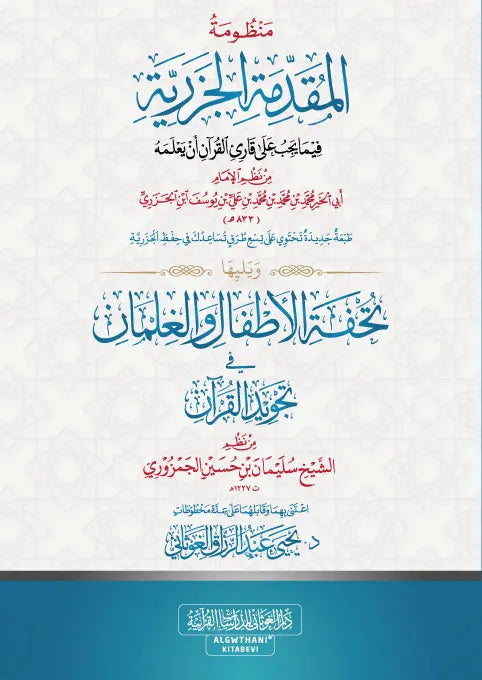 مَنْظُومَةُ
المُقَدِّمَةِ الجَزَرِيَّةِ
فِيمَا يَجِبُ عَلَىٰ قَارِئِ القُرْآنِ أَنْ يَعْلَمَهُ
مِنْ نَظْمِ الإِمَامِ
أَبِي الخَيْرِ مُحَمَّدِ بْنِ مُحَمَّدِ بْنِ مُحَمَّدِ بْنِ عَلِيِّ بْنِ يُوسُفَ ابْنِ الجَزَرِيِّ
(٨٣٣ هـ)
طَبْعَةٌ جَدِيدَةٌ تَحْتَوِي عَلَى تِسْعِ طُرُقٍ تُسَاعِدُكَ فِي حِفْظِ الجَزَرِيَّةِ
وَيَلِيهَا
تُحْفَةُ الأَطْفَالِ وَالغِلْمَانِ
فِي
تَجْوِيدِ القُرْآنِ
مِنْ نَظْمِ
الشَّيْخِ سُلَيْمَانَ بْنِ حُسَيْنِ الجَمْزُورِي
ت ١٢٢٧هـ
اعْتَنَى بِهِمَا وَقَابَلَهُمَا عَلَى عِدَّةِ مَخْطُوطَاتٍ
د. يَحْيَى عَبْدُ الرَّزَّاقِ الغَوْثَانِي
دَارُ الغَوْثَانِي لِلدِّرَاسَاتِ القُرْآنِيَّةِ
ALGWTHANI®
KITABEVI